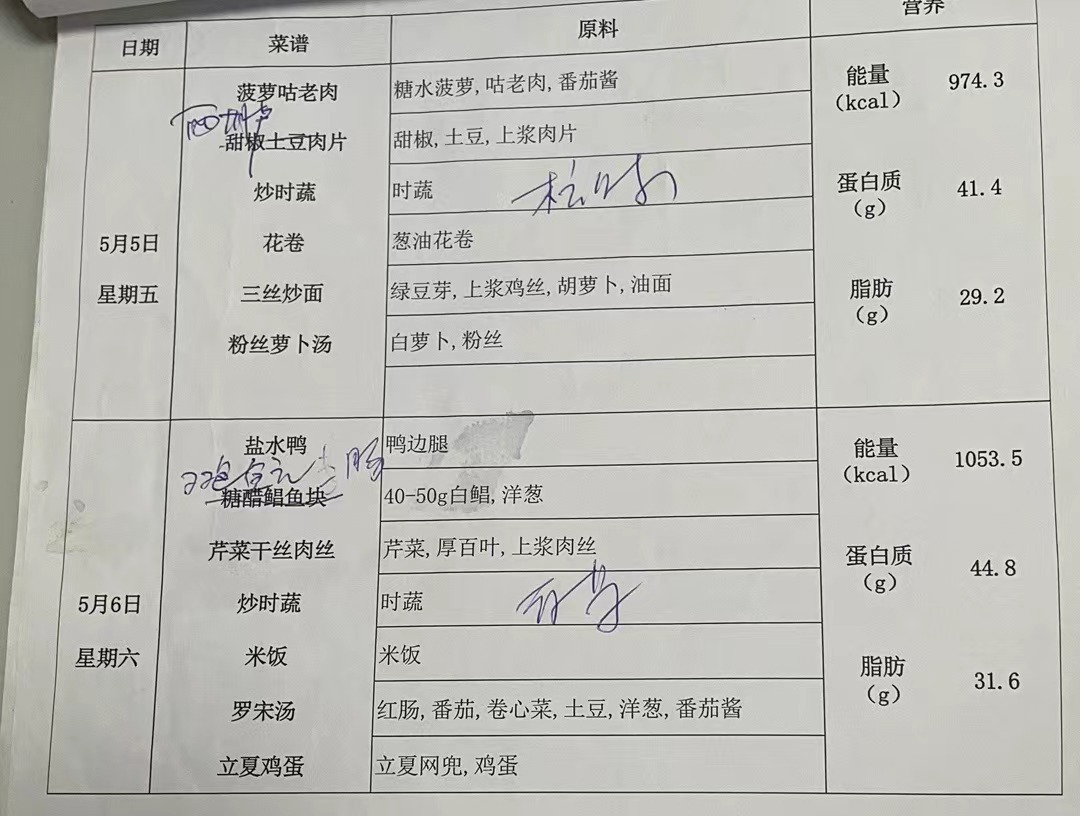 营养
日期 菜谱 原料
5月5日
星期五
菠萝咕老肉 糖水菠萝,咕老肉,番茄酱
甜椒土豆肉片 甜椒,土豆,上浆肉片
炒时蔬 时蔬
花卷 葱油花卷
三丝炒面 绿豆芽,上浆鸡丝,胡萝卜,油面
粉丝萝卜汤 白萝卜,粉丝
能量 974.3
(kcal)
蛋白质 41.4
(g)
脂肪 29.2
(g)
5月6日
星期六
盐水鸭 鸭边腿
糖醋鲳鱼块 40-50g白鲳,洋葱
芹菜干丝肉丝 芹菜,厚百叶,上浆肉丝
炒时蔬 时蔬
米饭 米饭
罗宋汤 红肠,番茄,卷心菜,土豆,洋葱,番茄酱
立夏鸡蛋 立夏网兜,鸡蛋
能量 1053.5
(kcal)
蛋白质 44.8
(g)
脂肪 31.6
(g)